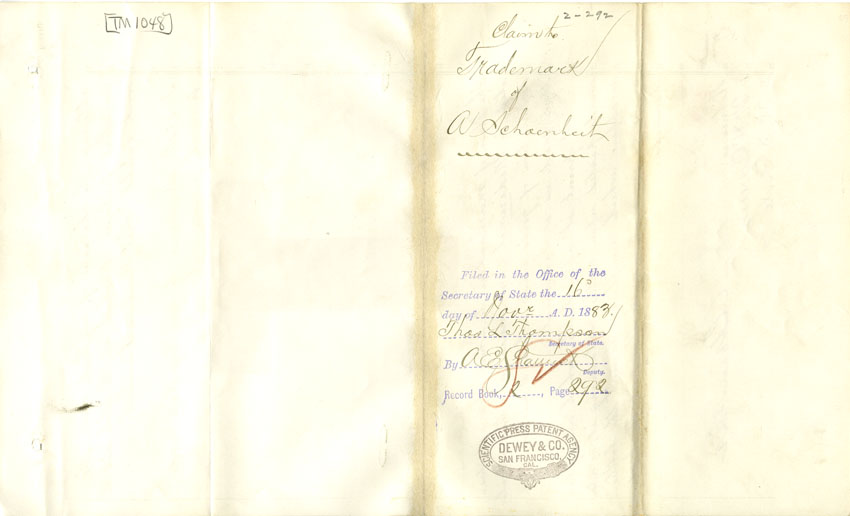 TM 1048
2-292
Claim to
Trademark
of
A Schoenheit
Filed in the Office of the
Secretary of State the 16
day of Novr A. D. 1883.
Thos L Thompson
Secretary of State.
By A E
Deputy.
Record Book, 2, Page 292
SCIENTIFIC PRESS PATENT AGENCY
DEWEY & CO.
SAN FRANCISCO,
CAL.